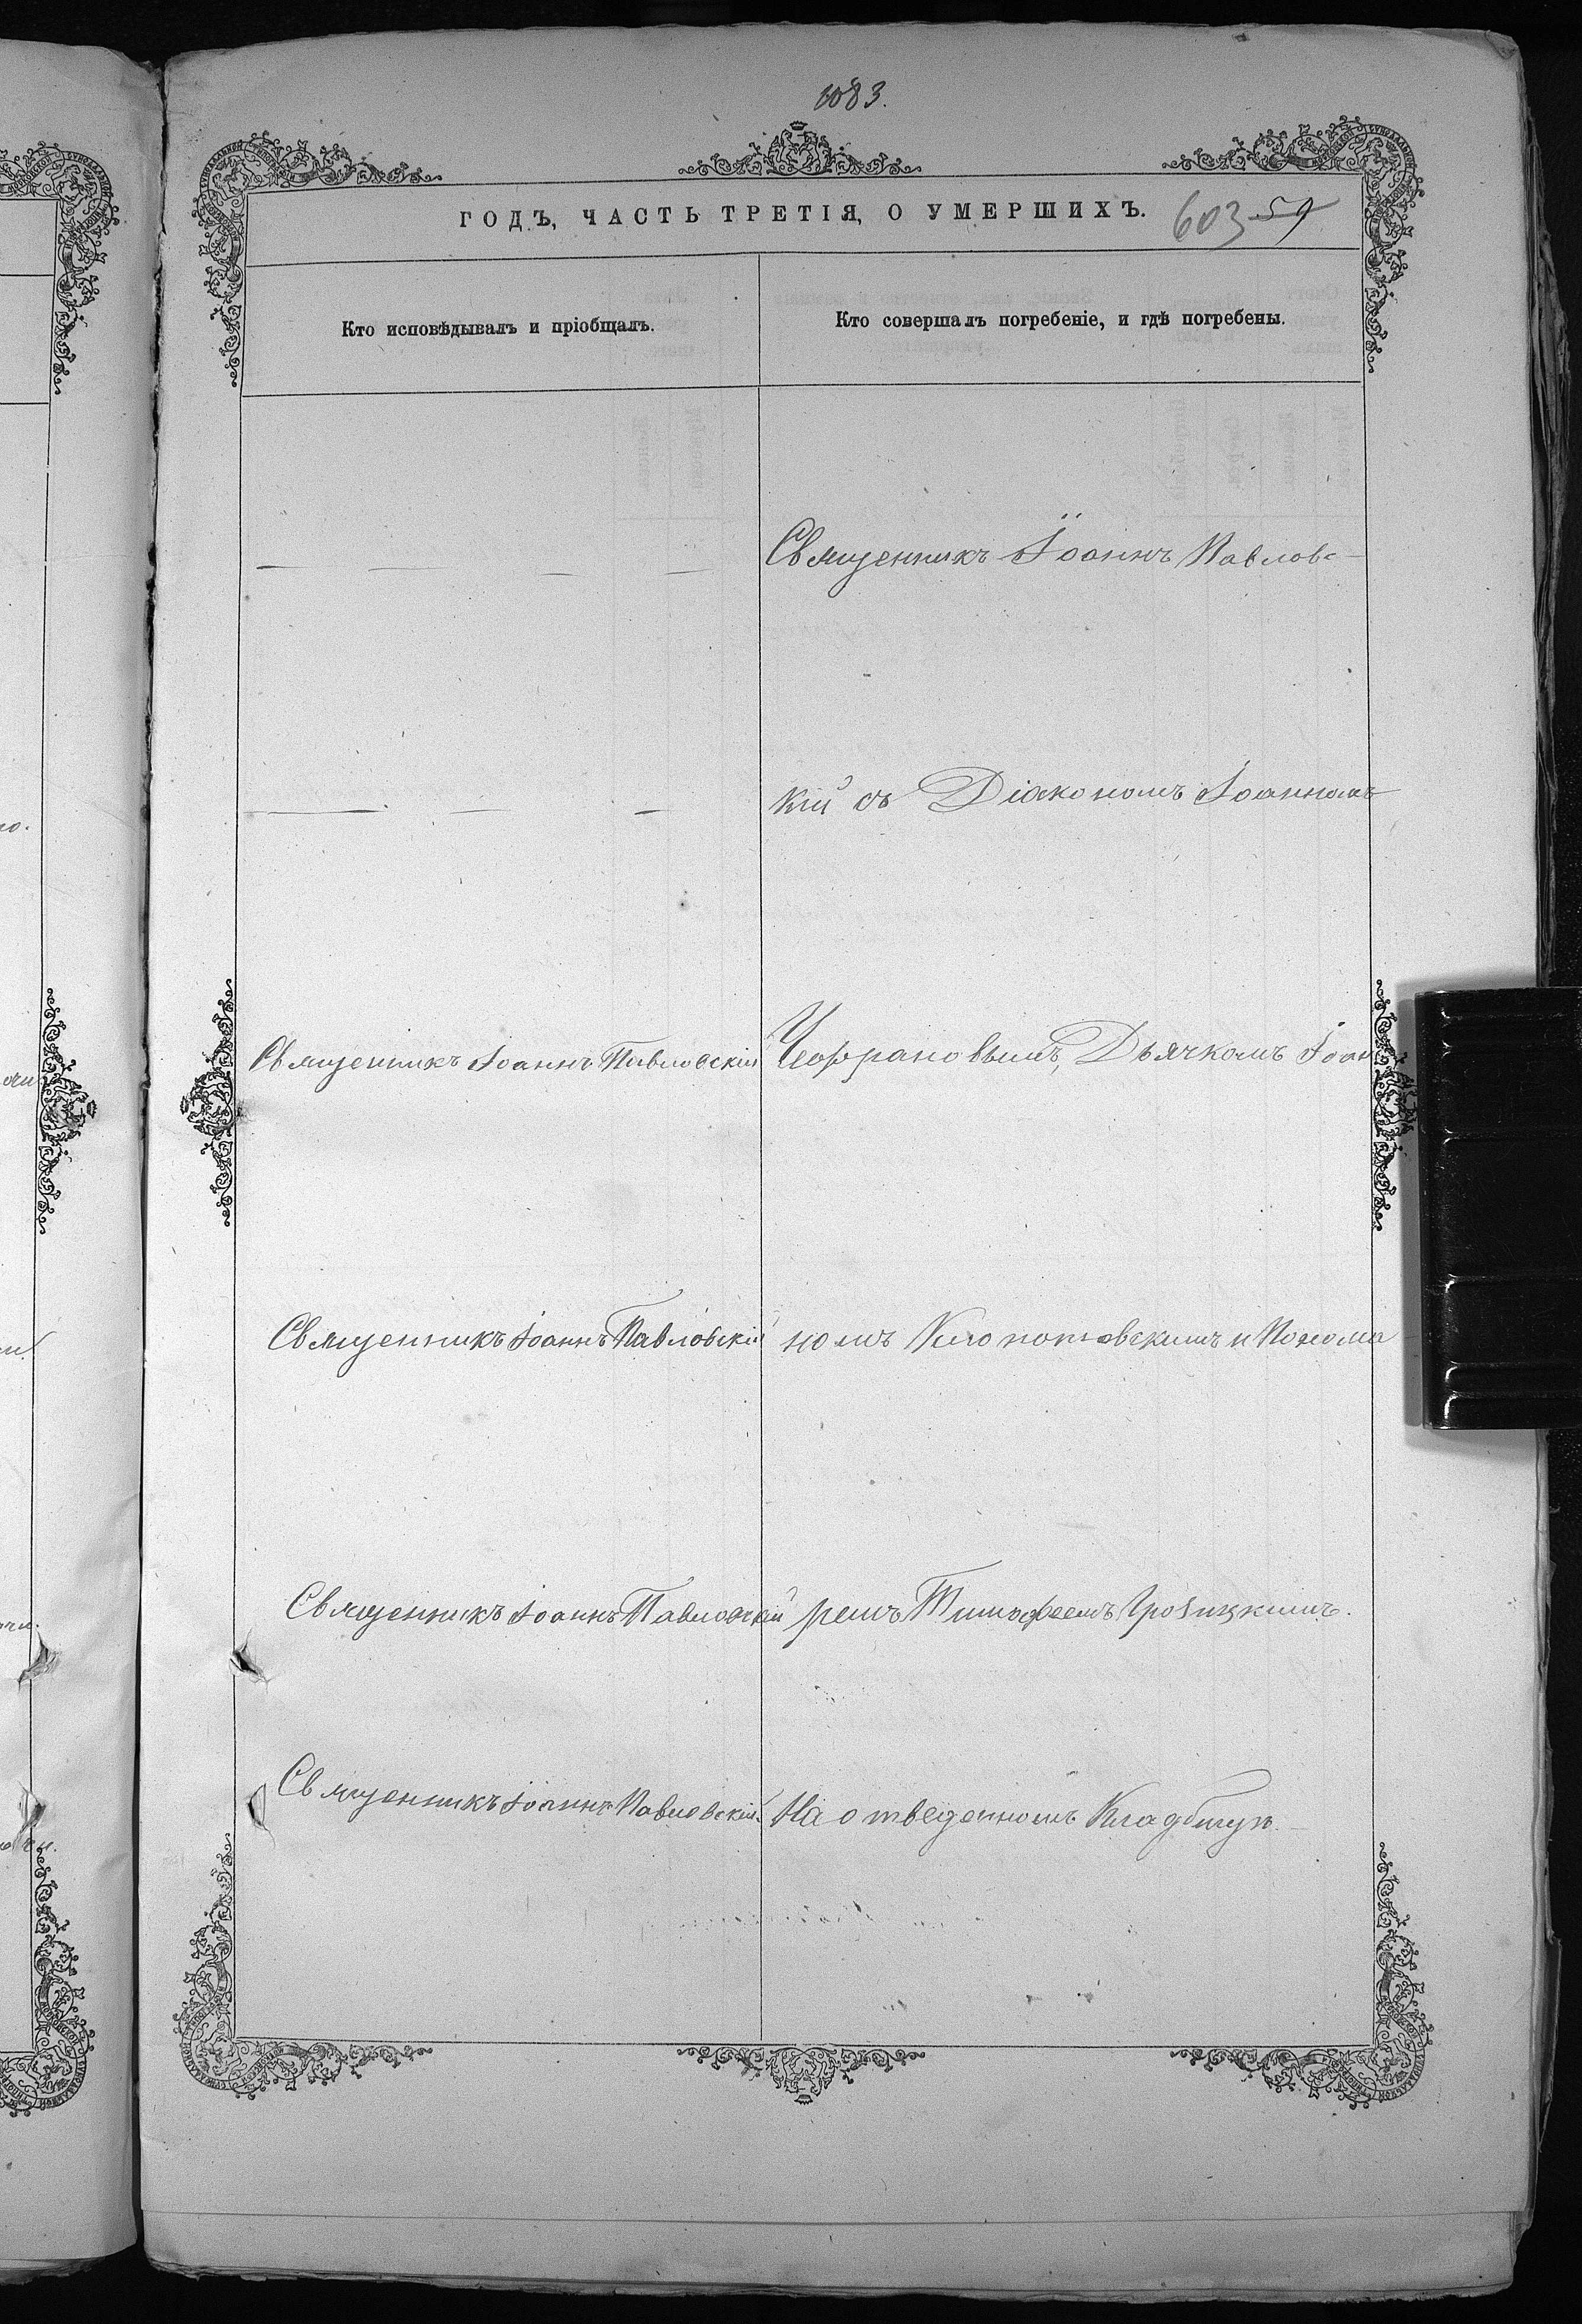 1083.
ГОДЪ, ЧАСТЬ ТРЕТІЯ, О УМЕРШИХЪ.
603 59
Кто исповѣдывалъ и пріобщалъ.
Кто совершалъ погребеніе, и гдѣ погребены.
Священникъ Іоаннъ Павловс-
кій съ Діакономъ Іоанномъ
Священникъ Іоаннъ Павловскій
Чефрановымъ, Дьячкомъ Іоан
Священникъ Іоаннъ Павловскій
номъ и Понома-
Священникъ Іоаннъ Павловскій
ремъ Тимофеемъ Грозицкимъ.
Священникъ Іоаннъ Павловскій.
На отведенномъ Кладбищѣ.